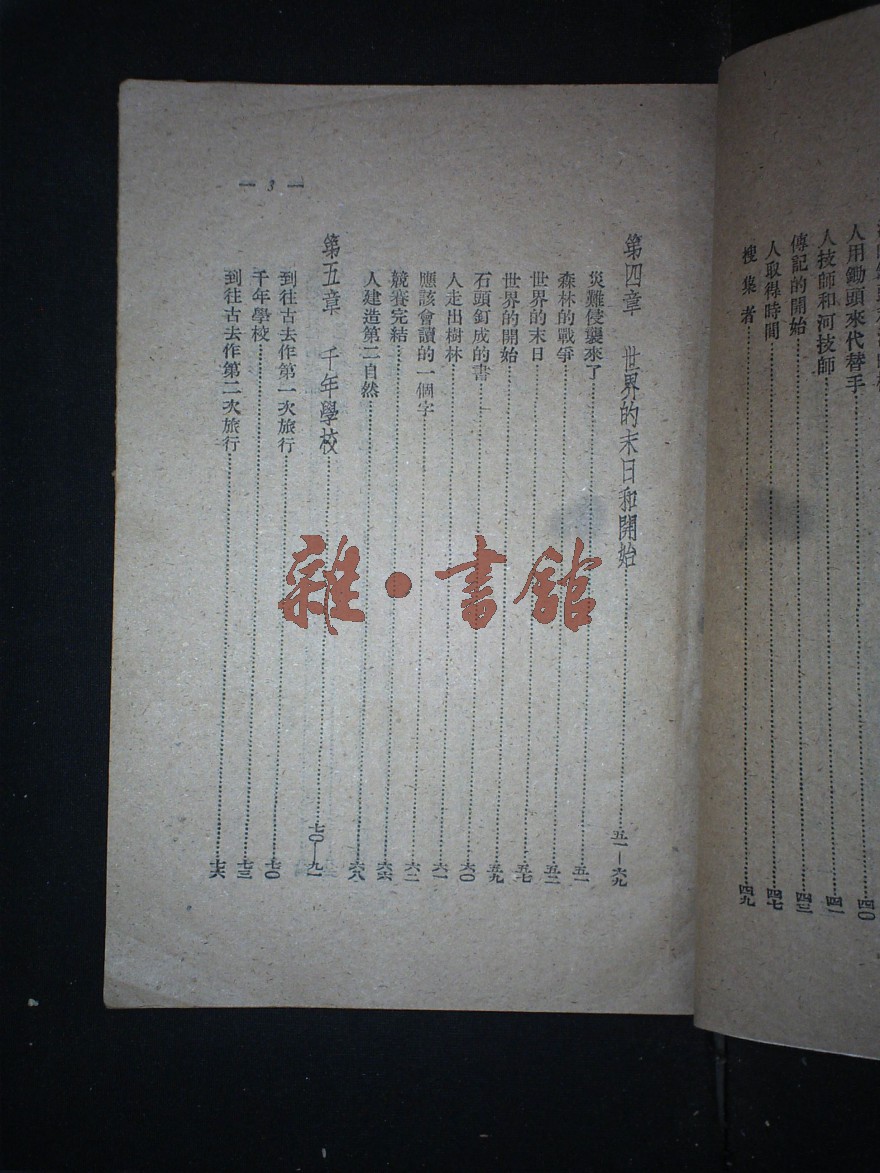 人用鋤頭來代替手……四〇
人技師和河技師……四一
傳記的開始……四三
人取得時間……四七
搜集者……四九
— 3 —
第四章 世界的末日和開始……五一—六九
災難侵襲來了……五一
森林的戰爭……五三
世界的末日……五七
世界的開始……五九
石頭釘成的書……六〇
人走出樹林……六一
應該會讀的一個字……六二
競賽完結……六六
人建造第二自然……六八
第五章 千年學校……七〇—九一
到往古去作第一次旅行……七〇
千年學校……七三
到往古去作第二次旅行……七六
雜·書館